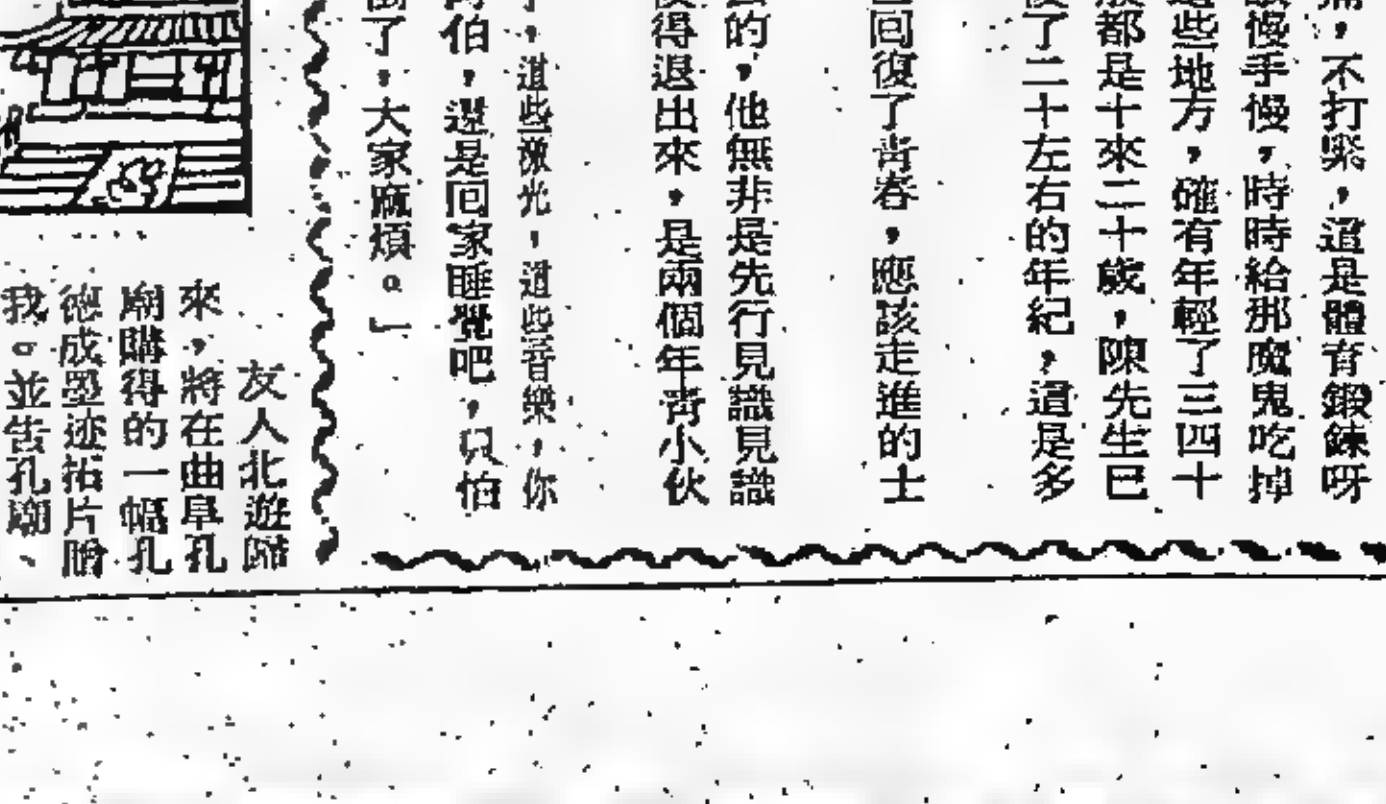 ，不打緊，這是體育鍛鍊呀
慢手慢，時時給那魔鬼吃掉
些地方，確有年輕了三四十
都是十來二十歲，陳先生已
了二十左右的年紀，這是多
回復了青春，應該走進的士
的，他無非是先行見識見識
得退出來，是兩個年青小伙
，這些激光，這些音樂，你
伯，還是回家睡覺吧，只怕
了，大家麻煩。」
友人北遊歸
來，將在曲阜孔
廟購得的一幅孔
德成墨迹拓片贈
我。並告孔廟、